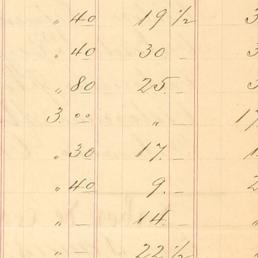 " 40 19 ½ 3
" 40 30 – 3
" 80 25 3
3. 00 " – 17
" 30 17. – 1
" 40 9. – 2
" – 14. –
" – 22 ½